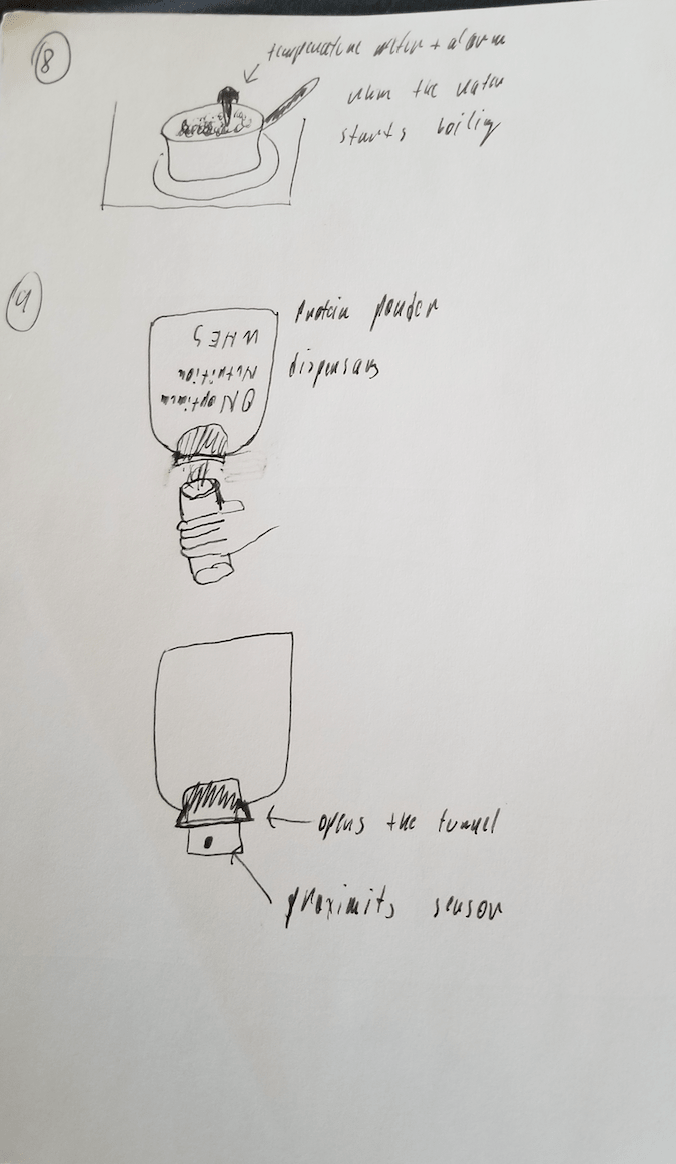 8
temperature meter + alarm
when the water
starts boiling
9
Protein powder
dispensary
WHE
Nitrution
ON optimum
opens the tunnel
proximity sensor